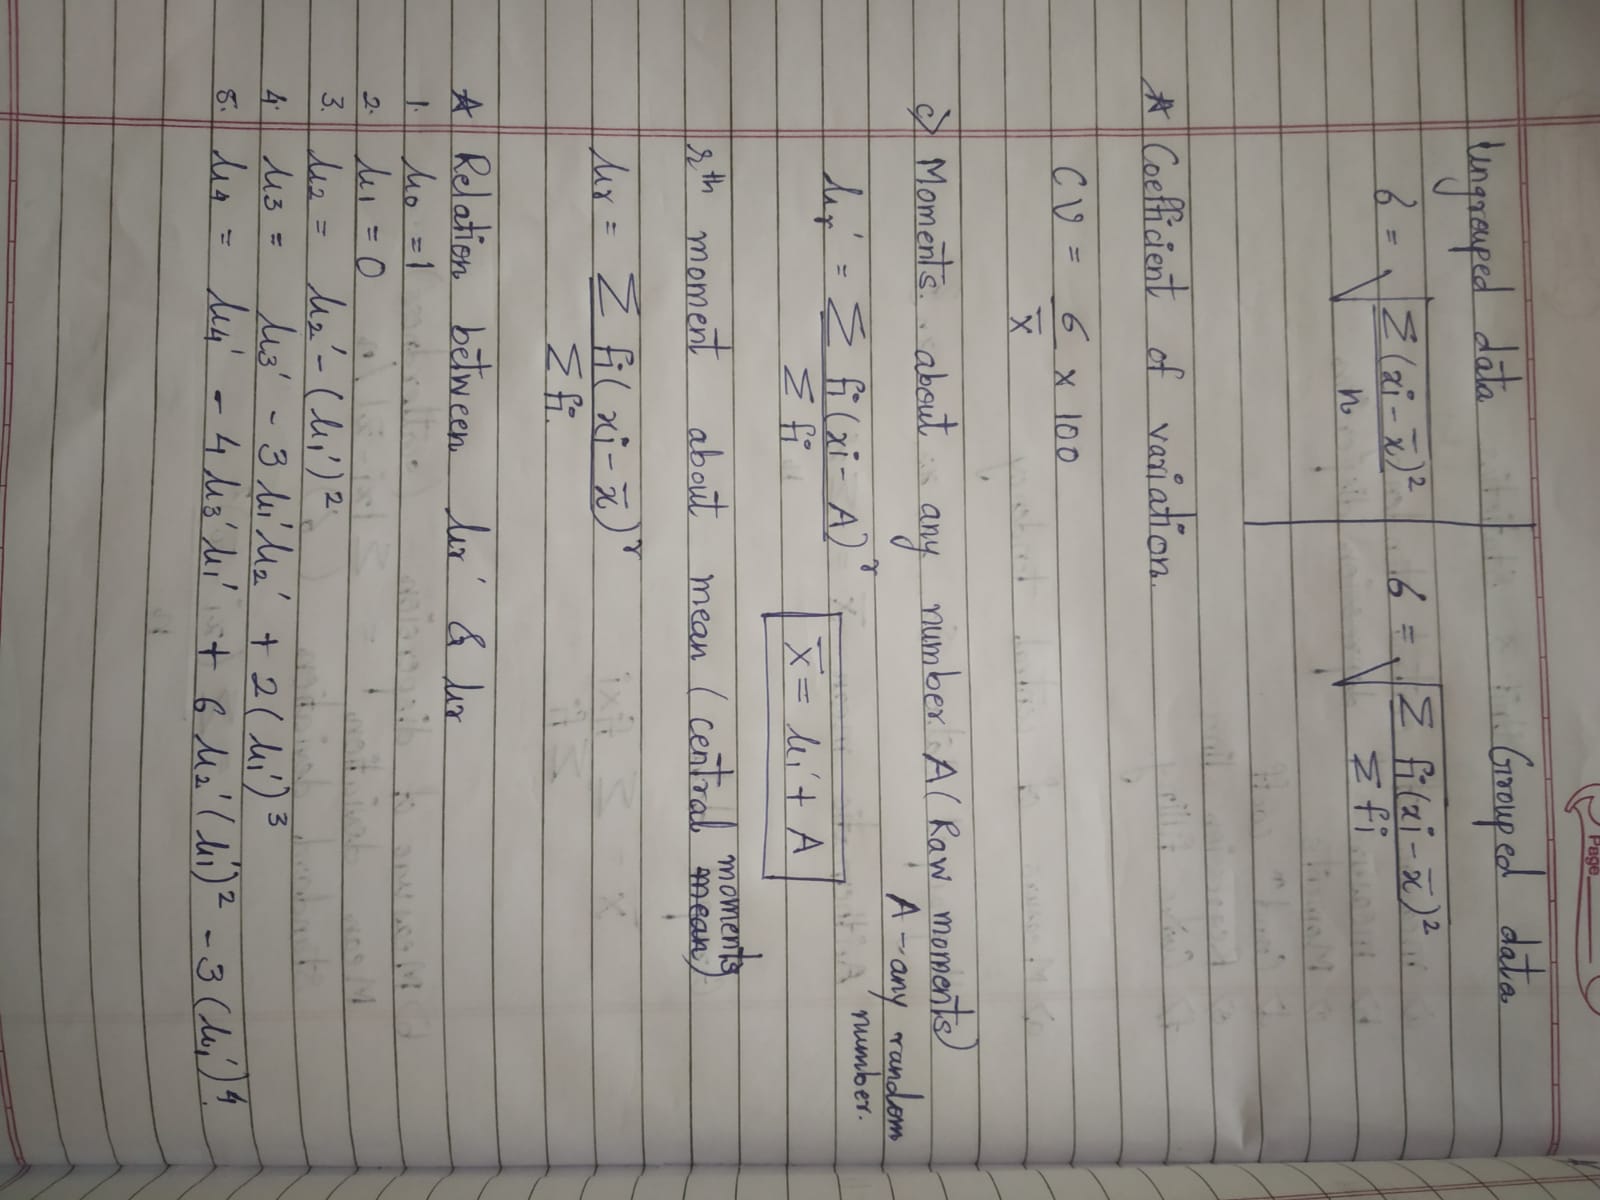 Page
Ungrouped data
σ = √(Σ(xi - x̄)² / n)
Grouped data
σ = √(Σ fi(xi - x̄)² / Σ fi)
☆ Coefficient of variation.
CV = σ / x̄ × 100
c) Moments. about any number A (Raw moments)
A - any random
number.
μr' = Σ fi(xi - A)^r / Σ fi
x̄ = μ1' + A
rth moment about mean (central moments mean)
μr = Σ fi(xi - x̄)^r / Σ fi.
☆ Relation between μr' & μr
1. μ0 = 1
2. μ1 = 0
3. μ2 = μ2' - (μ1')²
4. μ3 = μ3' - 3 μ1' μ2' + 2 (μ1')³
5. μ4 = μ4' - 4 μ3' μ1' + 6 μ2' (μ1')² - 3 (μ1')⁴.